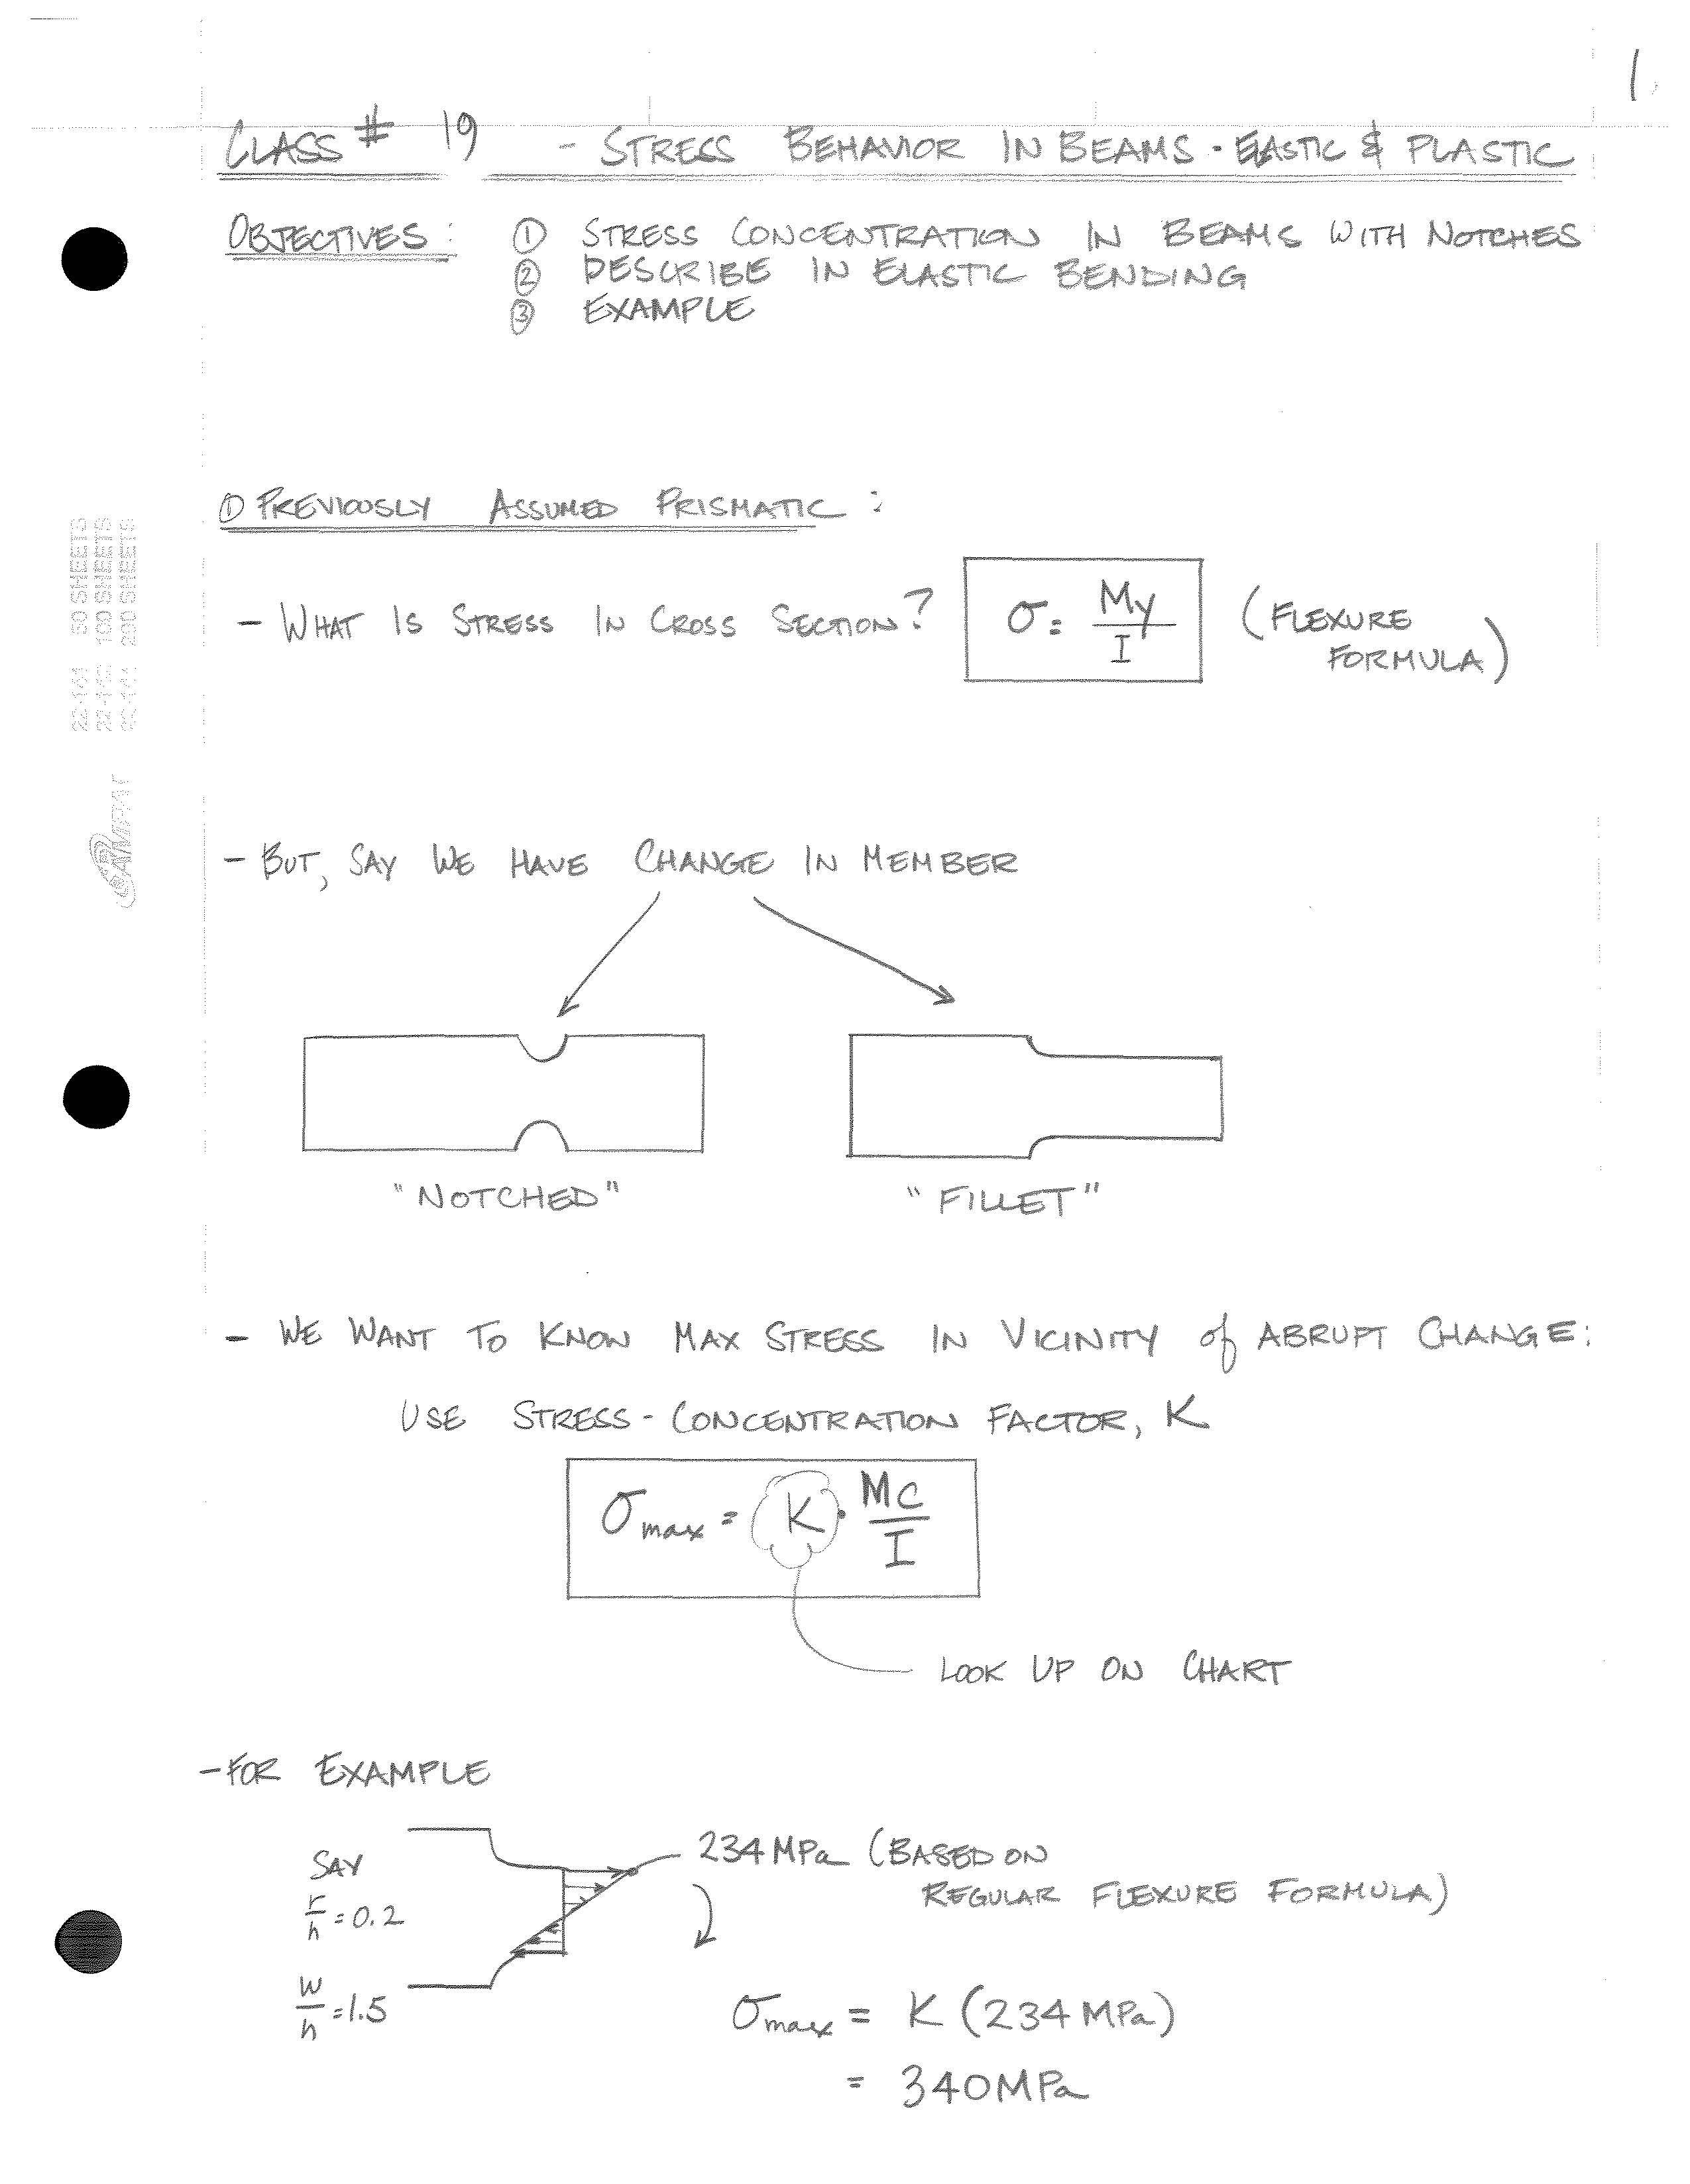 1
CLASS # 19 - STRESS BEHAVIOR IN BEAMS - ELASTIC & PLASTIC
OBJECTIVES: ① STRESS CONCENTRATION IN BEAMS WITH NOTCHES
② DESCRIBE INELASTIC BENDING
③ EXAMPLE
① PREVIOUSLY ASSUMED PRISMATIC:
- WHAT IS STRESS IN CROSS SECTION? σ = My/I (FLEXURE
FORMULA)
22-141 50 SHEETS
22-142 100 SHEETS
22-144 200 SHEETS
CAMPAD
- BUT, SAY WE HAVE CHANGE IN MEMBER
"NOTCHED" "FILLET"
- WE WANT TO KNOW MAX STRESS IN VICINITY of ABRUPT CHANGE:
USE STRESS-CONCENTRATION FACTOR, K
σmax = K · Mc/I
LOOK UP ON CHART
- FOR EXAMPLE
SAY
r/h = 0.2
w/h = 1.5
234 MPa (BASED ON
REGULAR FLEXURE FORMULA)
σmax = K (234 MPa)
= 340 MPa